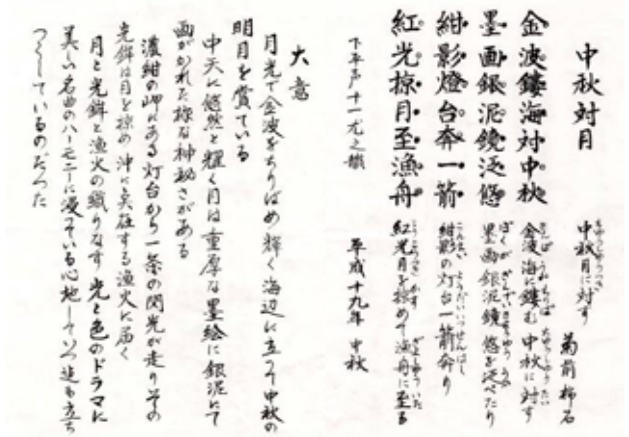 中秋対月
金波鏤海対中秋
墨画銀泥鏡泛悠
紺影燈台奔一箭
紅光掠月至漁舟
下平声十一尤之韻
中秋月に対す
菊前柿石
金波海に鏤む 中秋に対す
墨画銀泥鏡 悠を泛べたり
紺影の灯台一箭奔り
紅光月を掠めて漁舟に至る
平成十九年 中秋
大意
月光で金波をちりばめ輝く海辺に立って中秋の
明月を賞ている
中天に悠然と輝く月は重厚な墨絵に銀泥にて
画がかれた様な神秘さがある
濃紺の岬にある灯台から一条の閃光が走りその
光鉾は月を掠め沖に点在する漁火に届く
月と光鉾と漁火の織りなす光と色のドラマに
美しい名曲のハーモニーに浸っている心地していつ迄も立ち
つくしているのだった